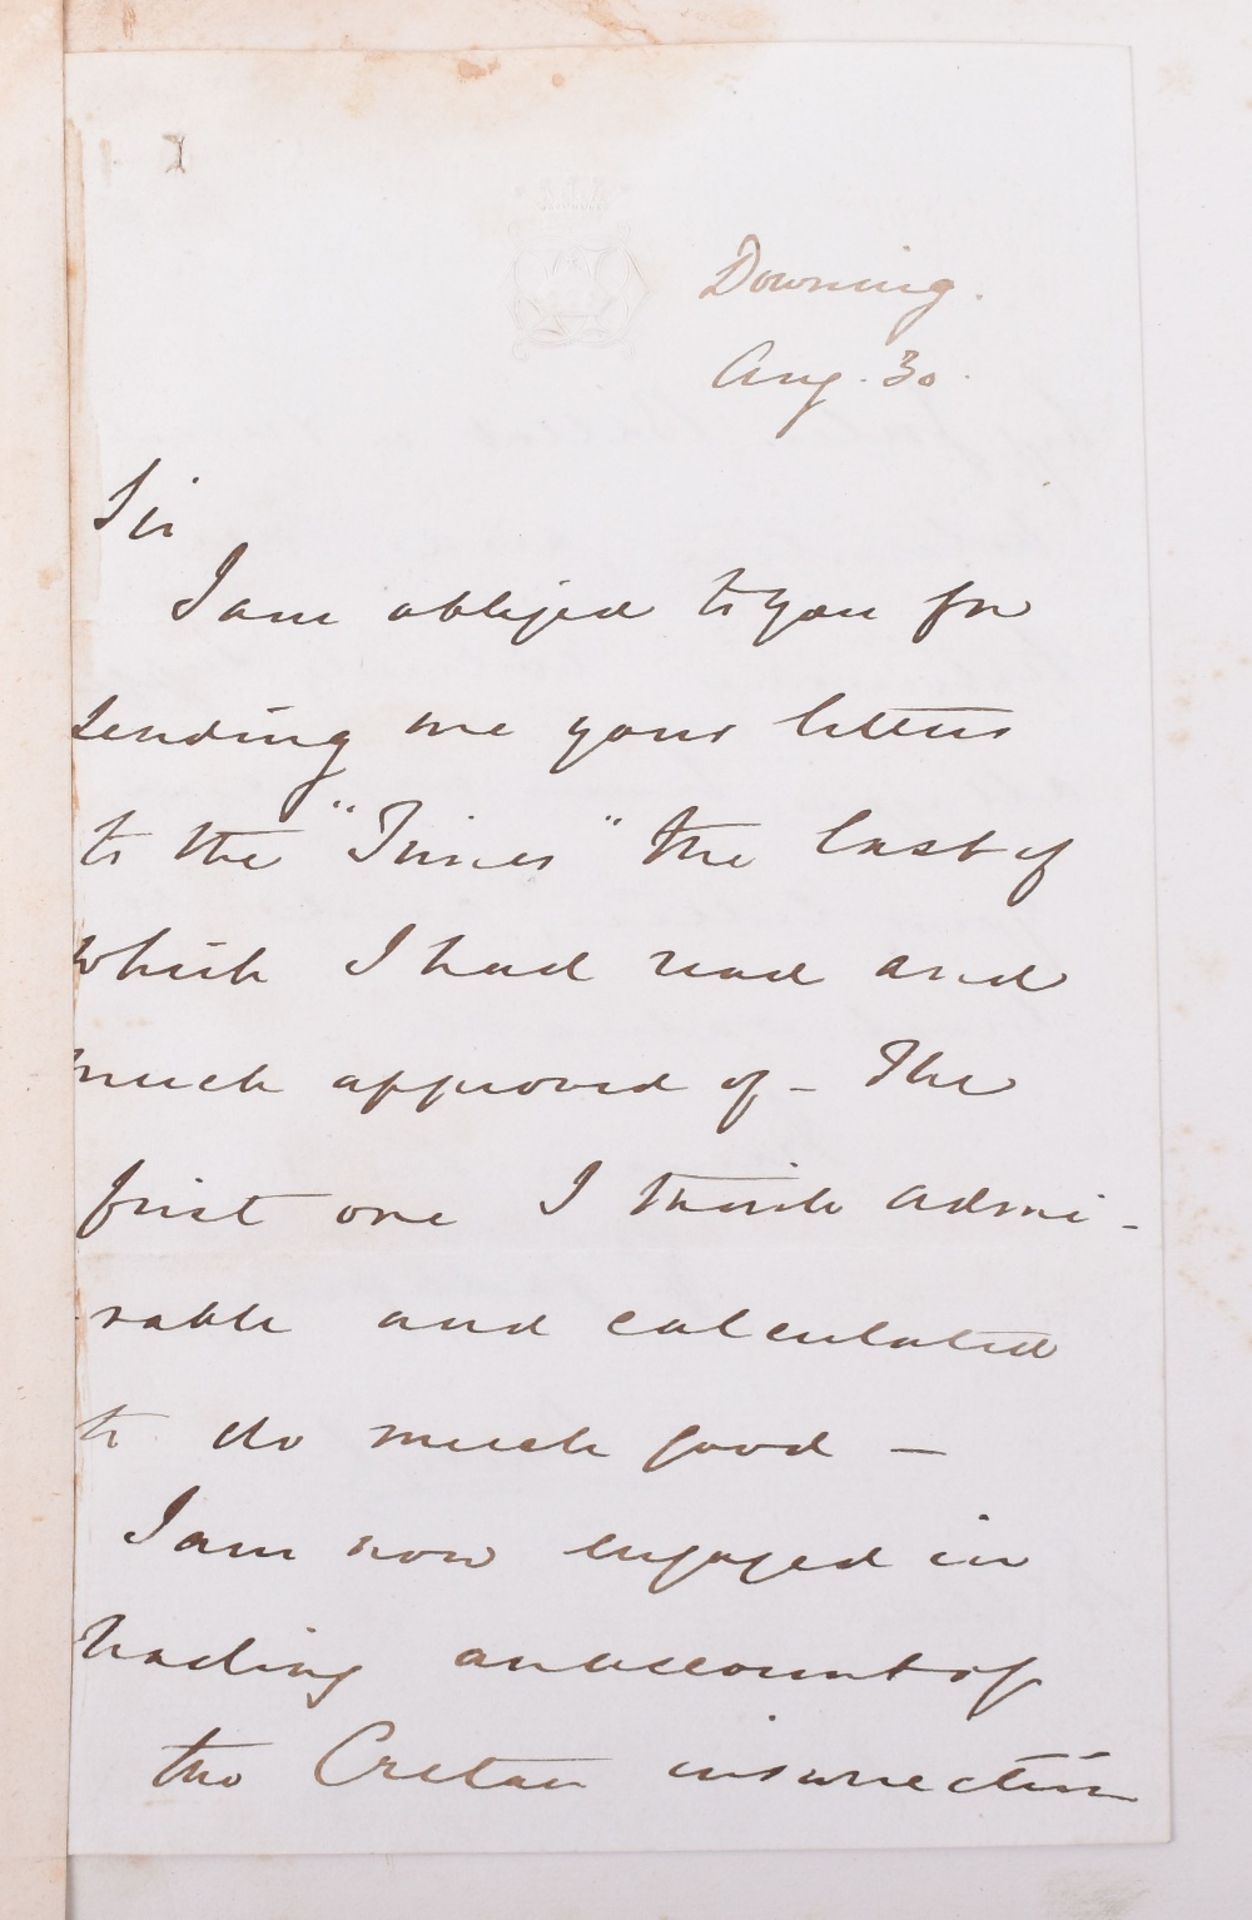 Downing.
Aug. 30.
Sir
I am obliged to you for
sending me your letters
to the "Times" the last of
which I had read and
much approved of - The
first one I think admi-
rable and calculated
to do much good -
I am now engaged in
reading an account of
the Cretan insurrection